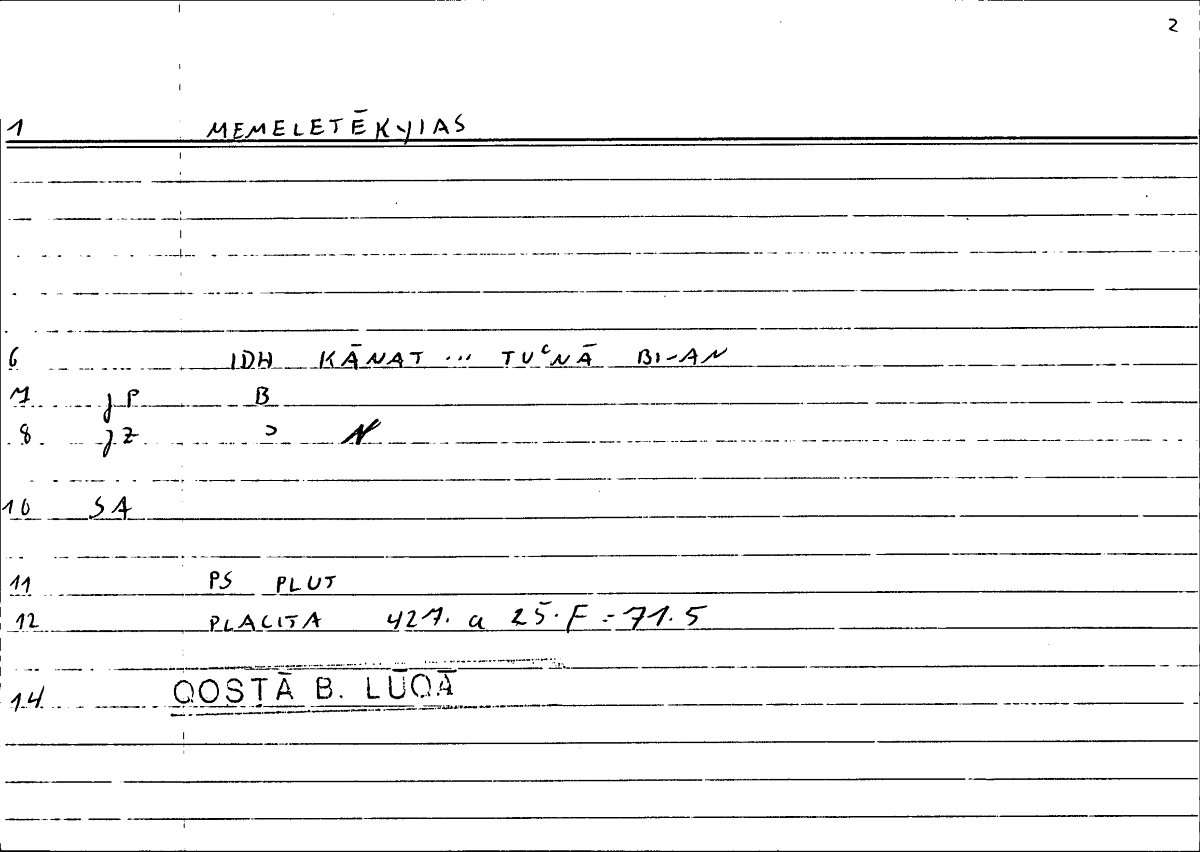 2
1 MEMELETĒKYIAS
6 IDH KĀNAT ... TUʿNĀ BI-AN
7 jP B
8. jZ ᵓ N
10 SA
11 PS PLUT
12 PLACITA 427. a 25. F = 71.5
14 QOSṬĀ B. LŪQĀ